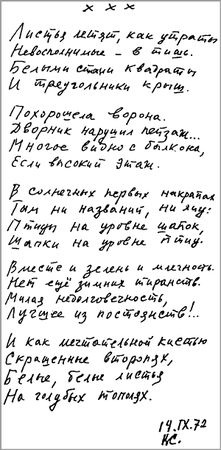 х х х
Листья летят, как утраты
Невосполнимые – в тишь.
Белыми стали квадраты
И треугольники крыш.
Похорошела ворона.
Дворник нарушил пейзаж...
Многое видно с балкона,
Если высокий этаж.
В солнечных первых накрапах
Там ни названий, ни лиц:
Птицы на уровне шапок,
Шапки на уровне птиц.
Вместе и зелень и млечность.
Нет ещё зимних тиранств.
Милая недолговечность,
Лучшее из постоянств!..
И как мечтательной кистью
Скрашенные второпях,
Белые, белые листья
На голубых тополях.
14.IX.72
НС.